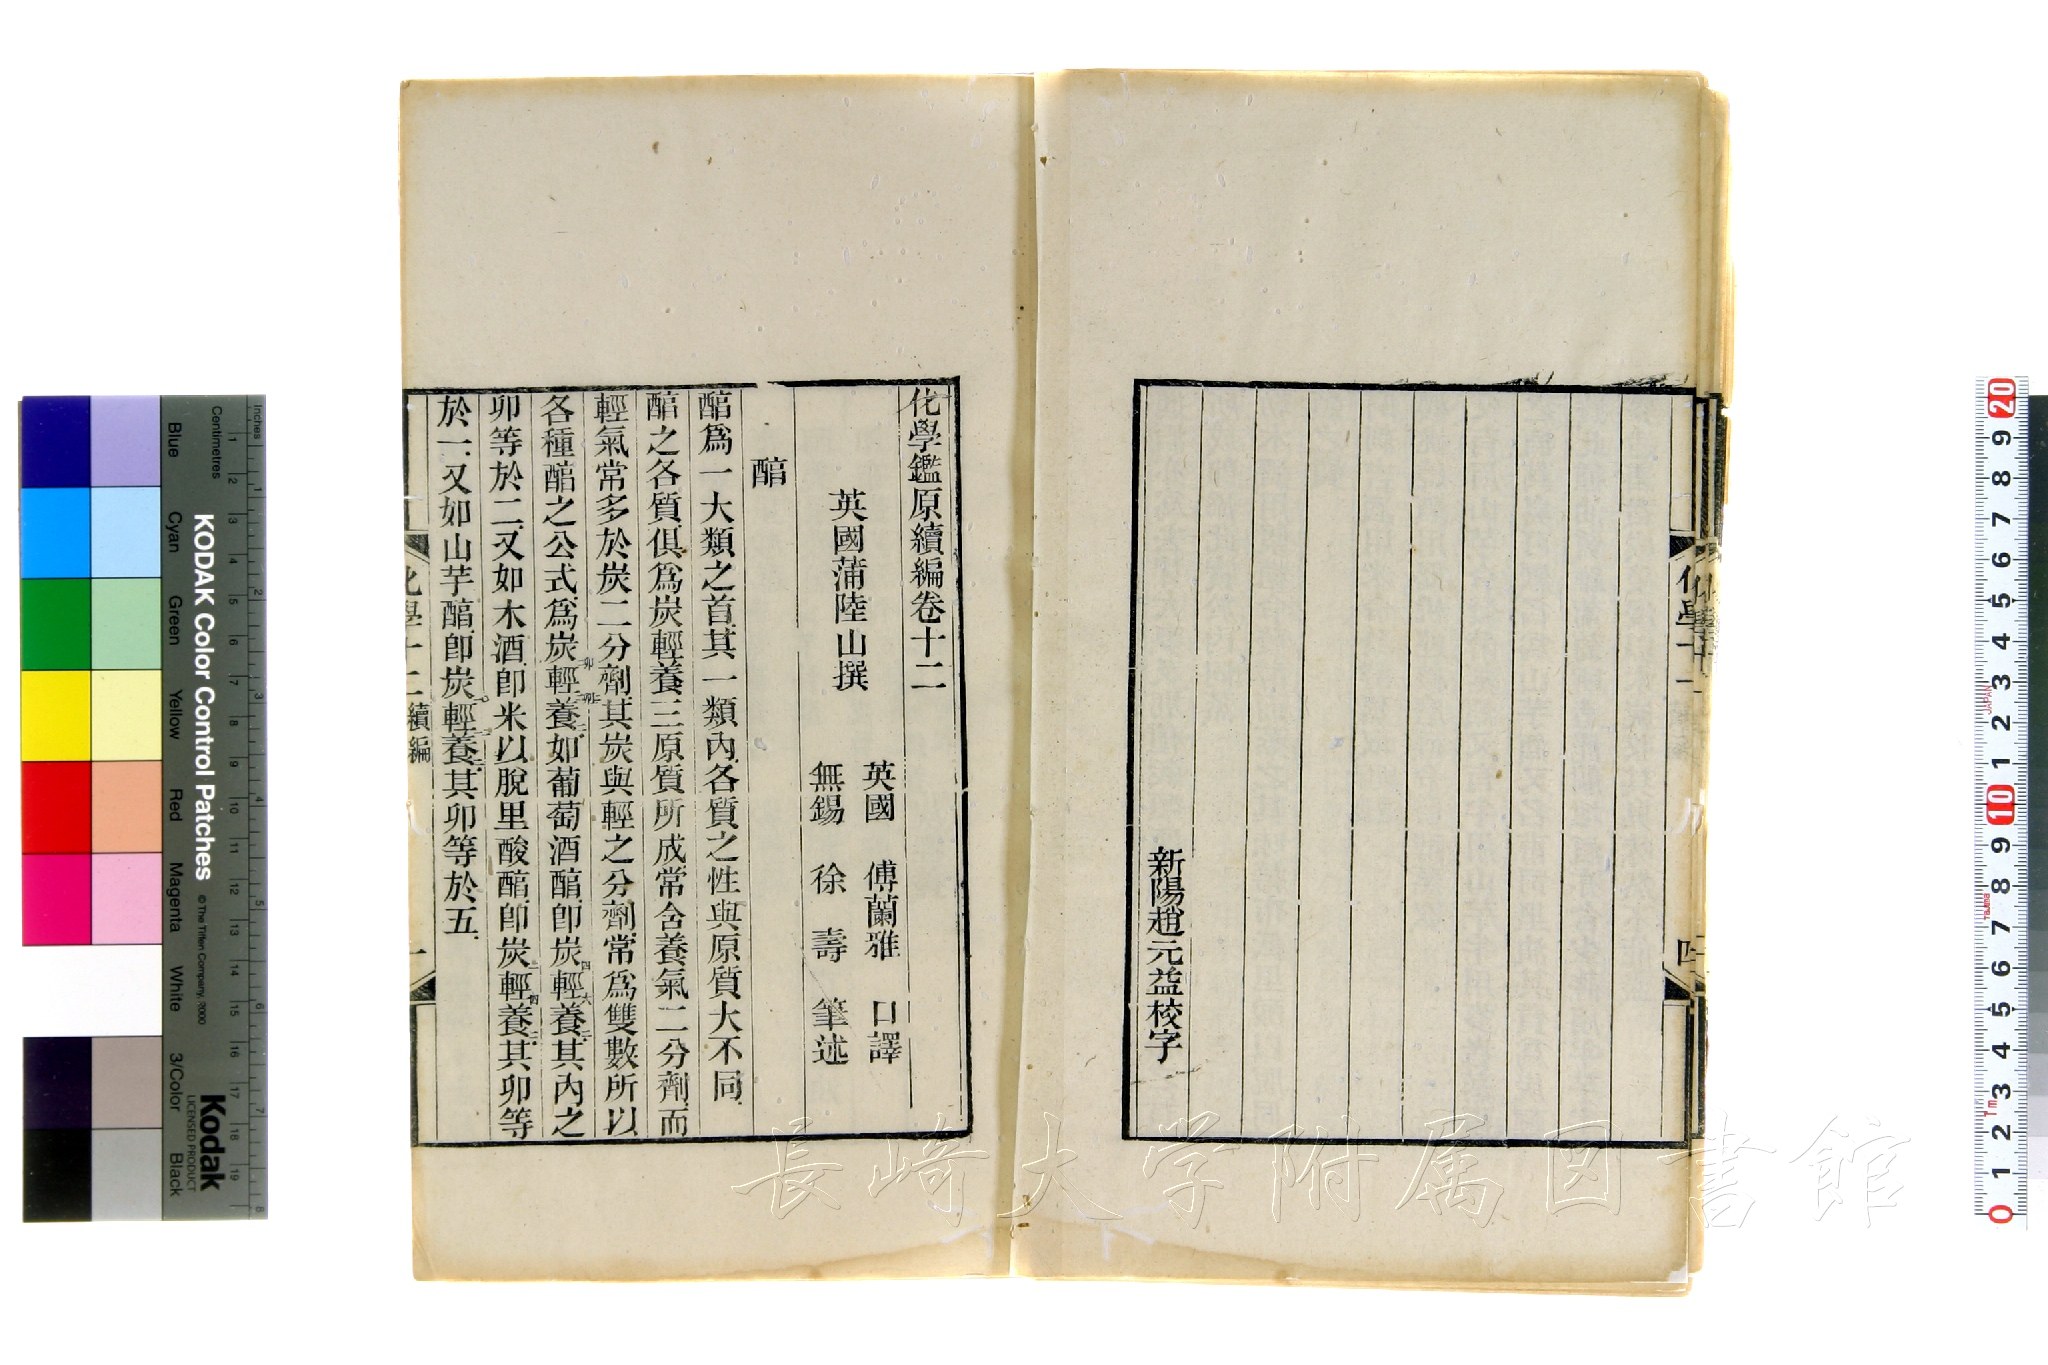 新陽趙元益校字
化學十一
化學鑑原續編卷十二
英國蒲陸山撰
英國 傅蘭雅 口譯
無錫 徐壽 筆述
醕
醕爲一大類之首其一類內各質之性與原質大不同
醕之各質俱爲炭輕養三原質所成常含養氣二分劑而
輕氣常多於炭二分劑其炭與輕之分劑常爲雙數所以
各種醕之公式爲炭輕養如葡萄酒醕卽炭四輕六養二其內之
卯等於二又如木酒卽米以脫里酸醕卽炭二輕四養二其卯等
於一又如山芋醕卽炭輕養其卯等於五
化學十二 續編
一
長崎大学附属図書館
KODAK Color Control Patches
© The Tiffen Company, 2000
Kodak
LICENSED PRODUCT
Inches
Centimetres
Blue
Cyan
Green
Yellow
Red
Magenta
White
3/Color
Black
JAPAN